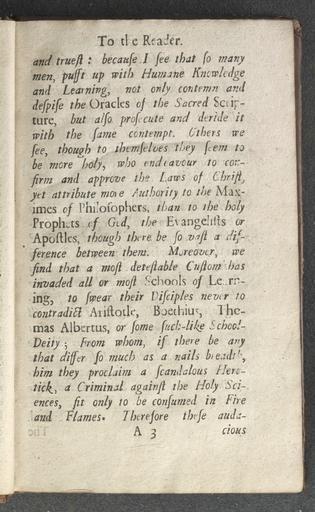 To the Reader.
and trueſt : becauſe I ſee that ſo many
men, puſft up with Humane Knowledge
and Learning, not only contemn and
deſpiſe the Oracles of the Sacred Scrip-
ture, but alſo proſecute and deride it
with the ſame contempt. Others we
ſee, though to themſelves they ſeem to
be more holy, who endeavour to con-
firm and approve the Laws of Chriſt,
yet attribute more Authority to the Max-
imes of Philoſophers, than to the holy
Prophets of God, the Evangeliſts or
Apoſtles, though there be ſo vaſt a dif-
ference between them. Moreover, we
find that a moſt deteſtable Cuſtom has
invaded all or moſt Schools of Learn-
ing, to ſwear their Diſciples never to
contradict Ariſtotle, Boethius, Tho-
mas Albertus, or ſome ſuch-like School-
Deity ; From whom, if there be any
that differ ſo much as a nails breadth,
him they proclaim a ſcandalous Here-
tick, a Criminal againſt the Holy Sci-
ences, fit only to be conſumed in Fire
and Flames. Therefore theſe auda-
A 3 cious